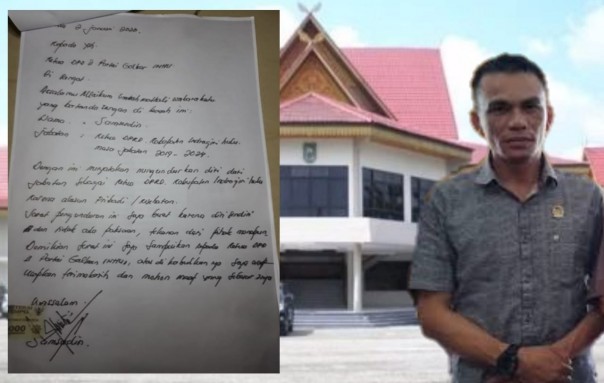 Januari
Kepada Yth
Ketua DPD II Partai Golkar INHU
Di Rengat
yang bertanda tangan di bawah ini:
Nama : Samsudin
Jabatan : Ketua DPRD Kabupaten Indragiri hulu
masa jabatan 2019 - 2024
Dengan ini menyatakan mengundurkan diri dari
Jabatan sebagai Ketua DPRD Kabupaten Indragiri hulu
Karena alasan Pribadi /
Surat pengunduran ini saya buat karena diri Sendiri
dan tidak ada paksaan, tekanan dari pihak manapun
Demikian Surat ini saya Sampaikan kepada Ketua DPD
II Partai Golkar INHU, atas saya
ucapkan terimakasih dan mohon maaf yang sebesar
Wassalam
000
Samsudin